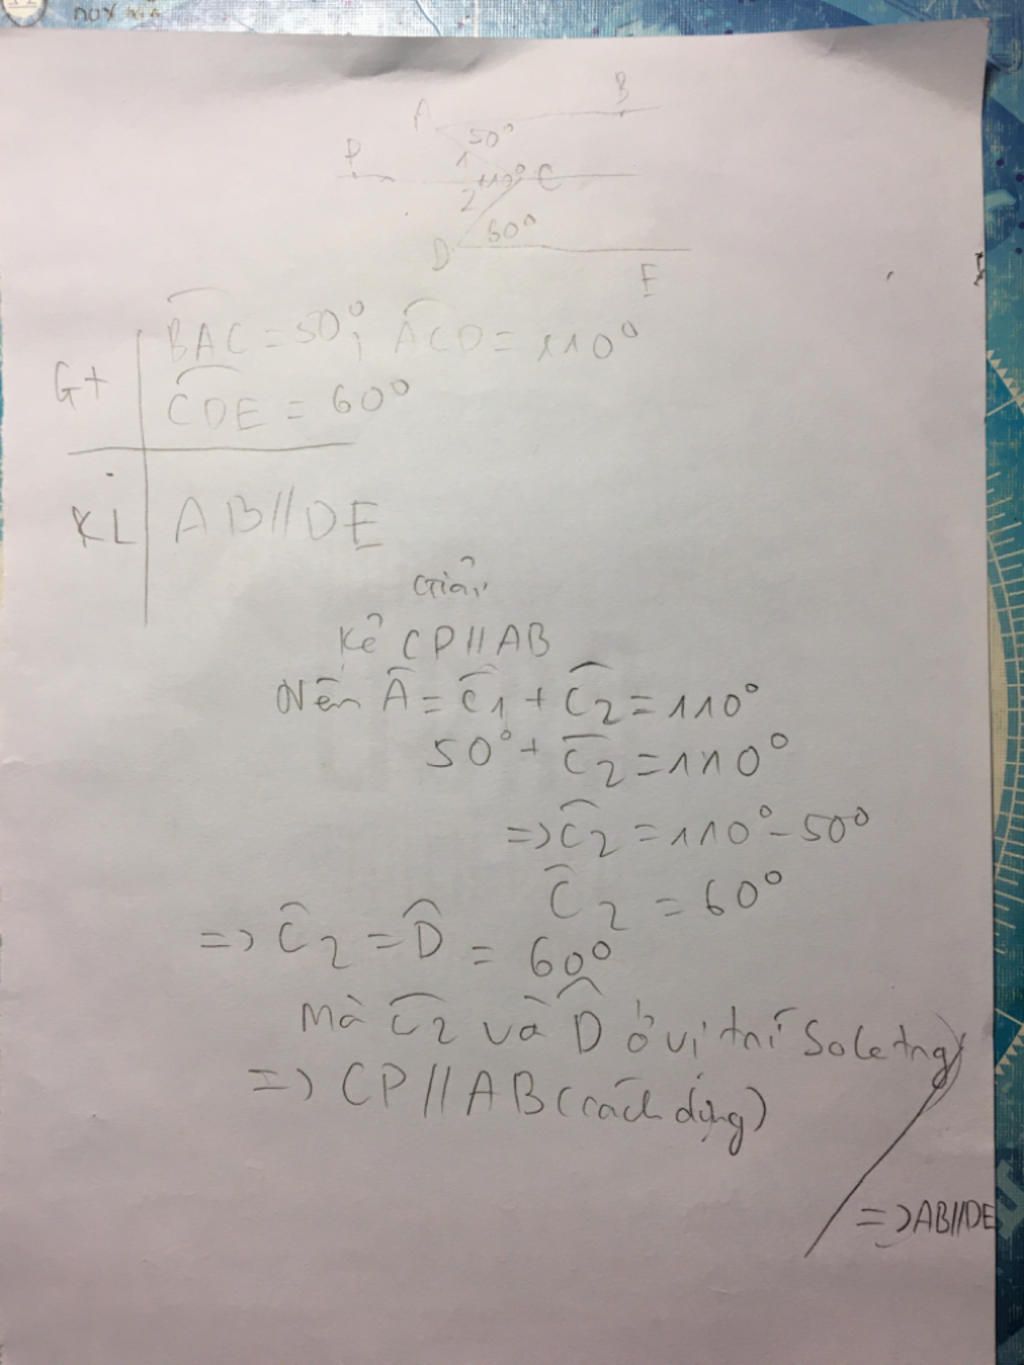 A
B
50°
P
1
110°
C
2
60°
D
E
BAC = 50°; ACD = 110°
Gt
CDE = 60°
KL
AB//DE
Giải
Kẻ CP//AB
Nên Â = Ĉ1 + Ĉ2 = 110°
50° + Ĉ2 = 110°
=> Ĉ2 = 110° - 50°
Ĉ2 = 60°
=> Ĉ2 = D̂ = 60°
Mà Ĉ2 và D̂ ở vị trí Sole tng
=> CP//AB (cách dựng)
=> AB//DE